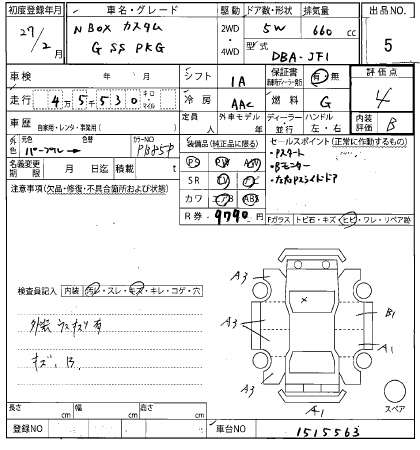 初度登録年月 車名・グレード 駆動 ドア数・形状 排気量 出品NO.
27年2月 N BOX カスタム G SS PKG 2WD・4WD 5W 660cc 5
型式 DBA-JF1
車検 年 月 シフト IA 保証書 有・無 評価点 4
走行 45530 キロ マイル 冷房 AAC 燃料 G 内装評価 B
車歴 自家用・レンタ・事業用( ) 定員 人 外車モデル 年 ディーラー・並行 ハンドル 左・右
外色 元色 パープル 色替 カラーNO PB85P
名義変更期限 月 日迄 積載 t
装備品(純正品に限る)
PS PW AW
SR
カワ エアB ABS
R券 9790円
セールスポイント(正常に作動するもの)
・Pスタート
・Bモニター
注意事項(欠品・修復・不具合箇所および状態)
Fガラス トビ石・キズ・ヒビ・ワレ・リペア跡
検査員記入 内装 汚レ・スレ・キズ・キレ・コゲ・穴
キズ、B
A3
A3
A3
A3
B1
A1
A1
スペア
長さ cm 幅 cm 高さ cm
登録NO 車台NO 1515563